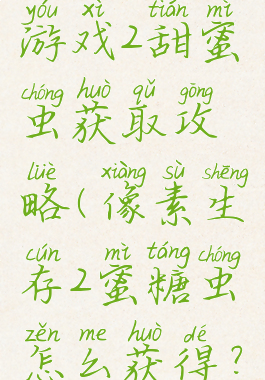 yóu xì tián mì
游戏2甜蜜
chóng huò qǔ gōng
虫获取攻
lüè xiàng sù shēng
略(像素生
cún mì táng chóng
存2蜜糖虫
zěn me huò dé
怎么获得?